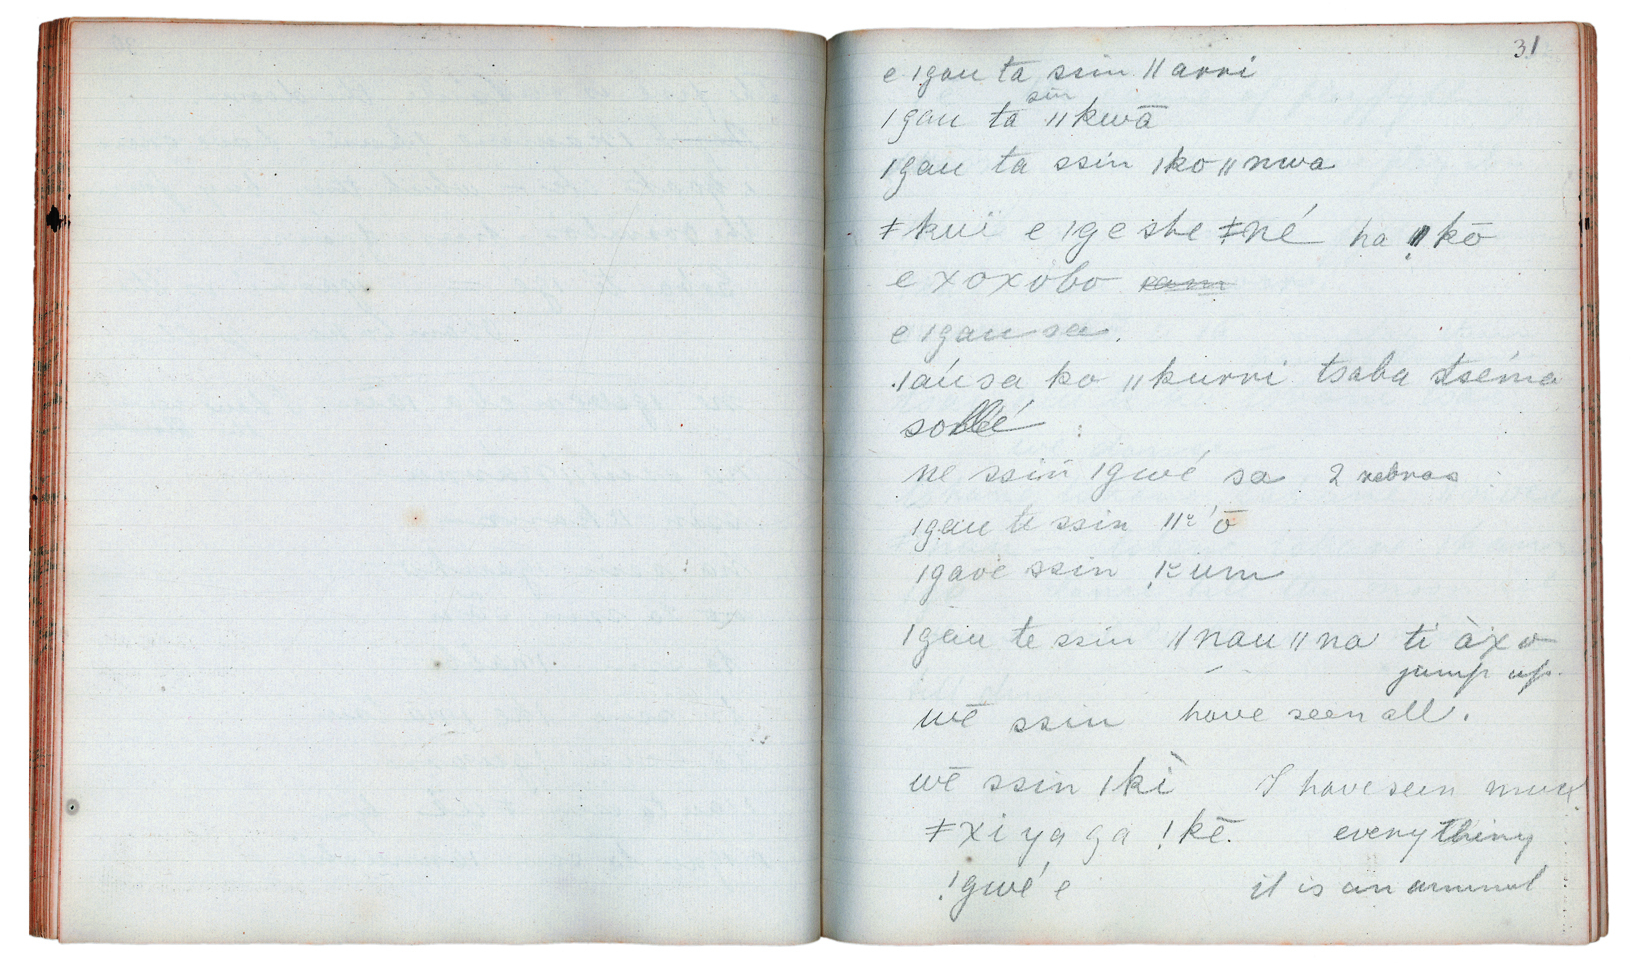 31
e ǀgau ta ssin ǁarri
sin
ǀgau ta ǁkwā
ǀgau ta ssin ǀko ǁnwa
ǂkuï e ǀge she ǂné ha kō
e xoxobo
e ǀgau sa.
ǀaúsa ko ǁkurri tsaba tséma
ne ssiń ǀgwé sa 2 zebras
ǀgau te ssin
ǀgavè ssin
ǀgau te ssin ǁnau ǁna ti àxo
jump up.
wē ssin have seen all.
wē ssin ǀkì I have seen much
ǂxi ya ga !kē. everything
!gwé e it is an animal